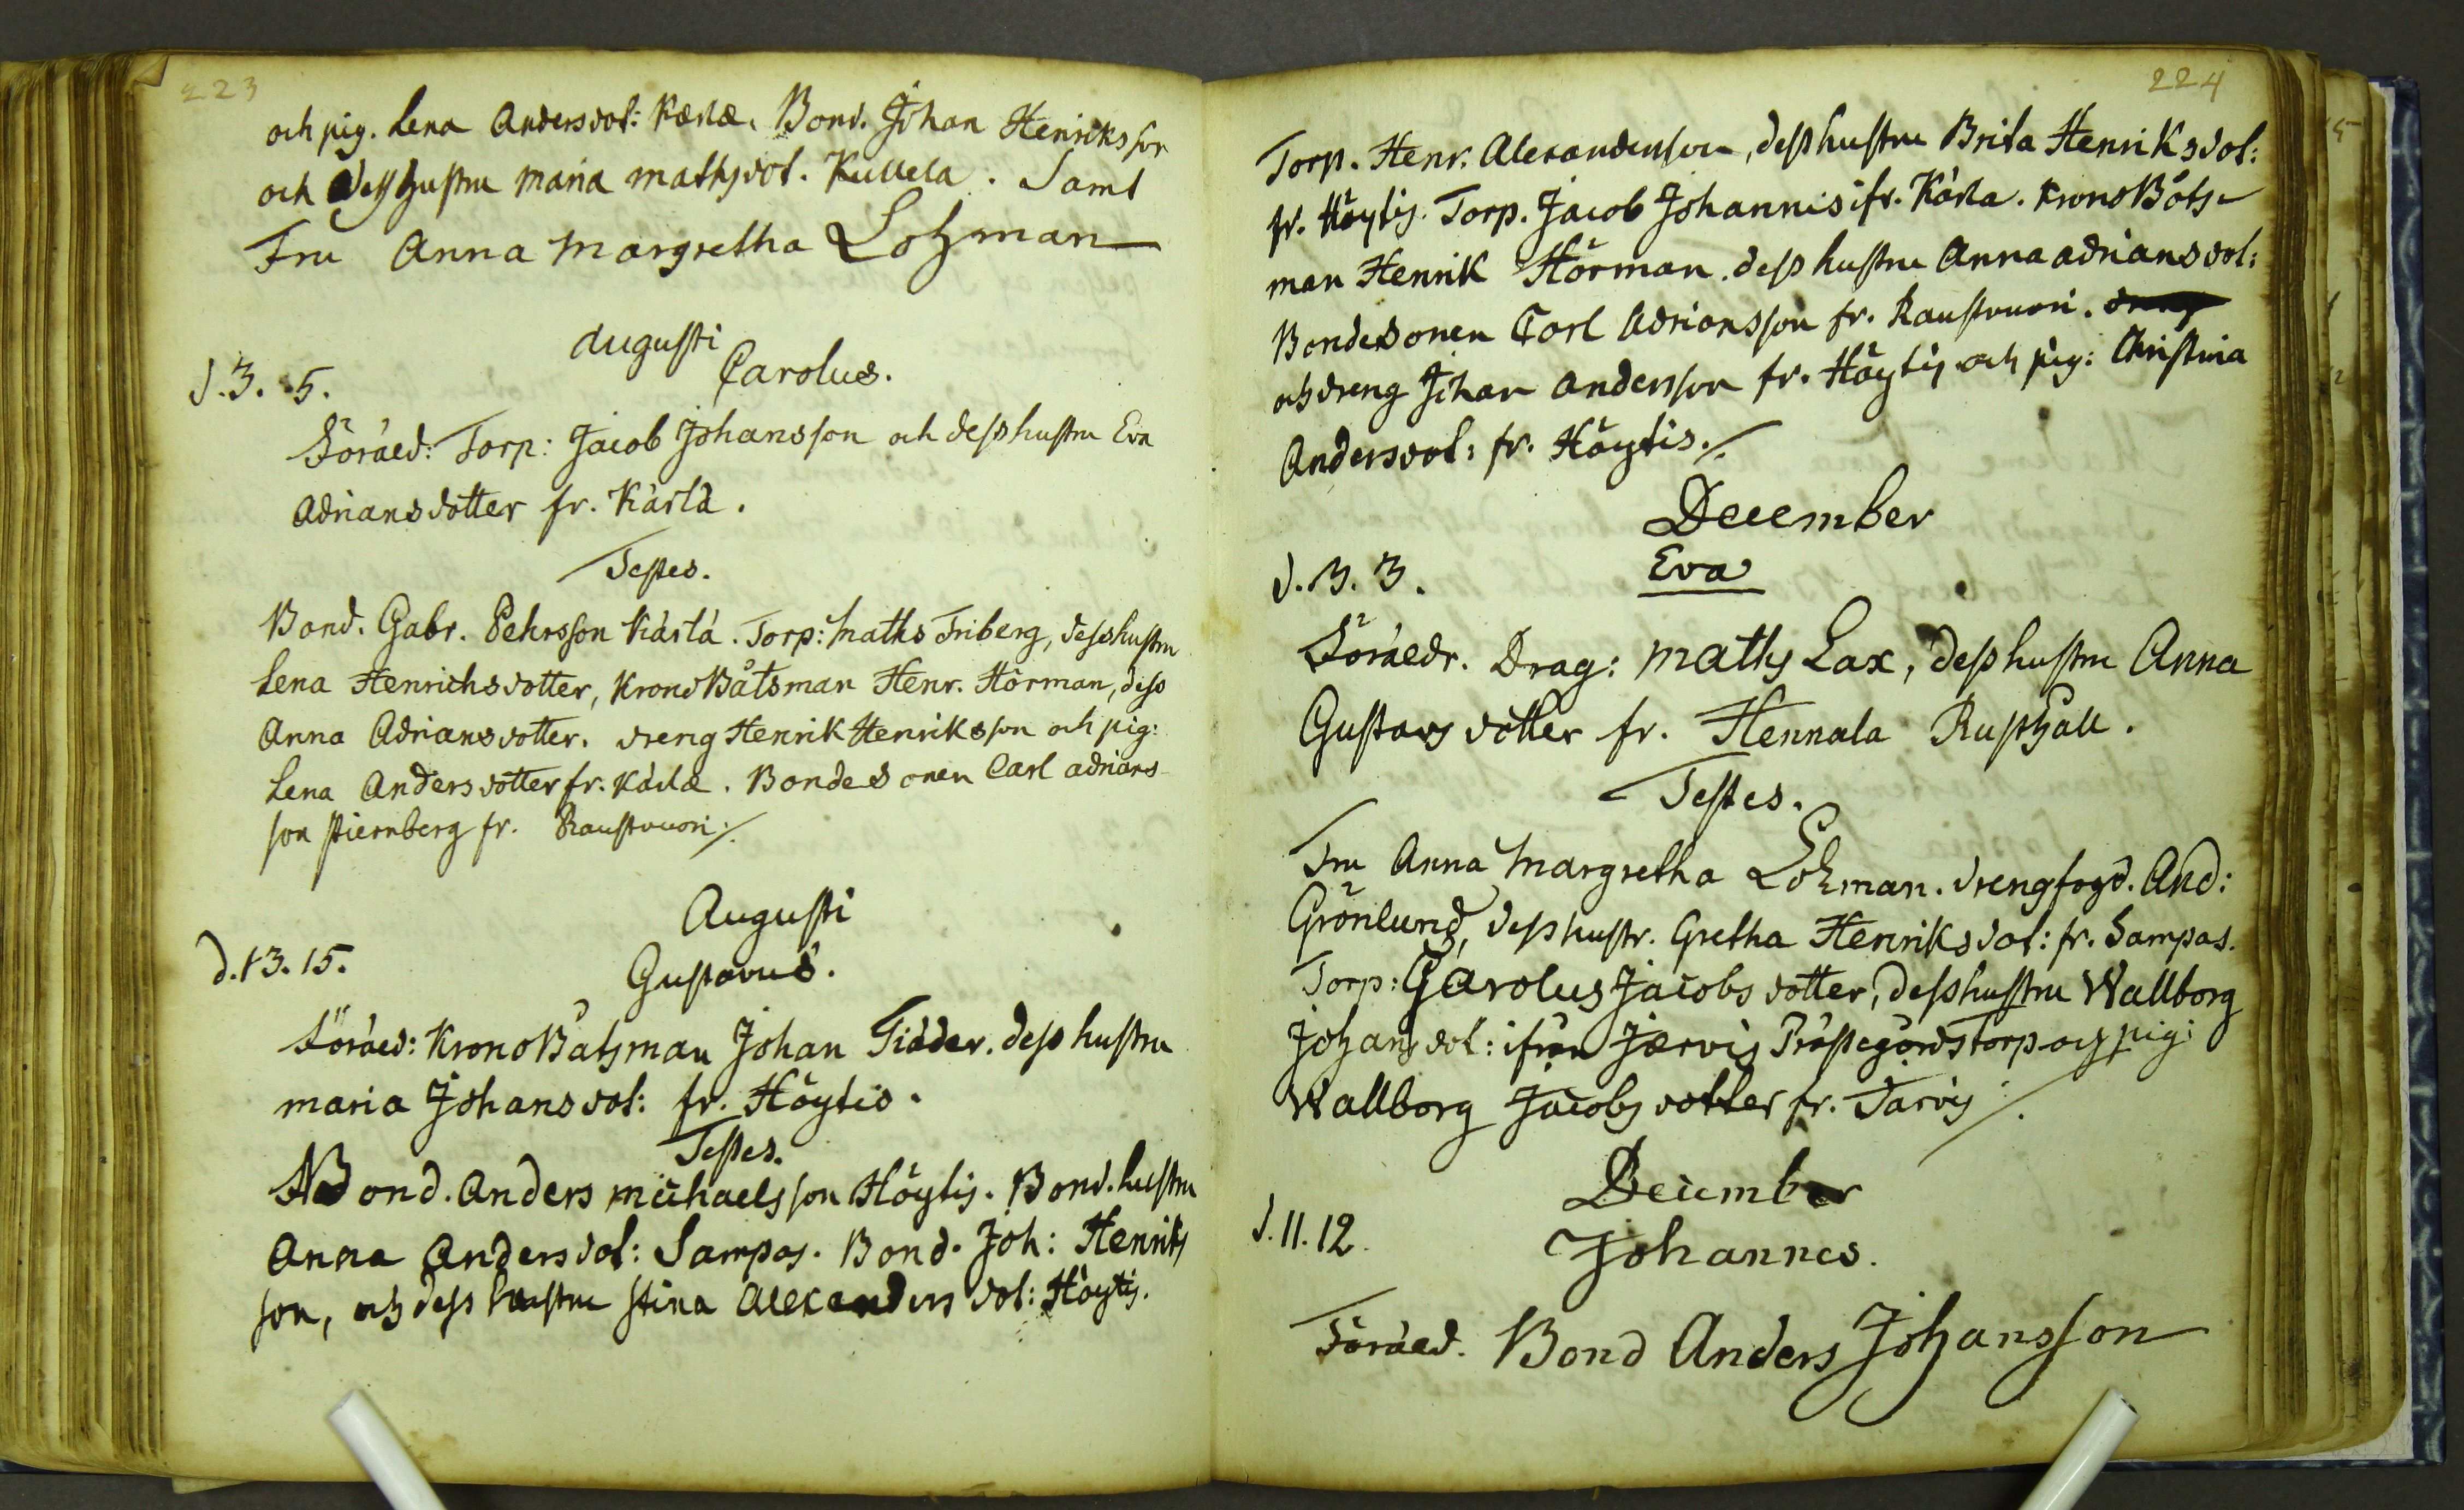 223
och pig. Lena Andersdot: Kærlæ. Bond. Johan Henriksson
och dess hustru Maria Mathsdot. Kullela. Samt
Fru Anna Margretha Lohman
Augusti
d. 3. 5. Carolus.
Föräld: Torp: Jacob Johansson och desshustru Eva
Adriansdotter fr. Kärlä.
Testes.
Bond. Gabr. Pehrsson Kärlä. Torp: Maths Friberg, desshustru
Lena Henrichsdotter, Krono Båtsman Henr. Hörman, dess
Anna Adriansdotter. dreng Henrik Henriksson och pig:
Lena Andersdotter fr. Kärlæ. Bondesonen Carl Adrians
son Stiernberg fr. Raustvuori ./.
Augusti
d. 13. 15. Gustavus.
Föräld: Krono Båtsman Johan Tidder. dess hustru
Maria Johansdot: fr. Höytis.
Testes.
Bond. Anders Michaelsson Höytis. Bond. hustru
Anna Andersdot: Sampas. Bond. Joh: Henriks
son, och dess hustru Stina Alexandersdot: Höytis.
224
Torp. Henr. Alexandersson, desshustru Brita Henriksdot:
fr. Höytis. Torp. Jacob Johannis ifr. Kärla. Krono Båts-
man Henrik Hörman. dess hustru Anna Adriansdot:
Bondesonen Carl Adriansson fr. Raustvuori.
och dreng Johan Andersson fr. Höytis och pig: Christina
Andersdot: fr. Höytis ./.
December
d. 3. 3. Eva
Föräldr. Drag: Maths Lax, dess hustru Anna
Gustavsdotter fr. Hennala Rusthåll.
Testes.
Fru Anna Margretha Lohman. drengfogd. And:
Grönlund, dess hustr. Gretha Henriksdot: fr. Sampas.
Torp: Carolus Jacobs dotter, desshustru Wallborg
Johansdot: ifrån Jærvis Prästegårdstorp och pig:
Wallborg Jacobsdotter fr. Järvis ./.
December
d. 11. 12. Johannes.
Föräld. Bond Anders Johansson